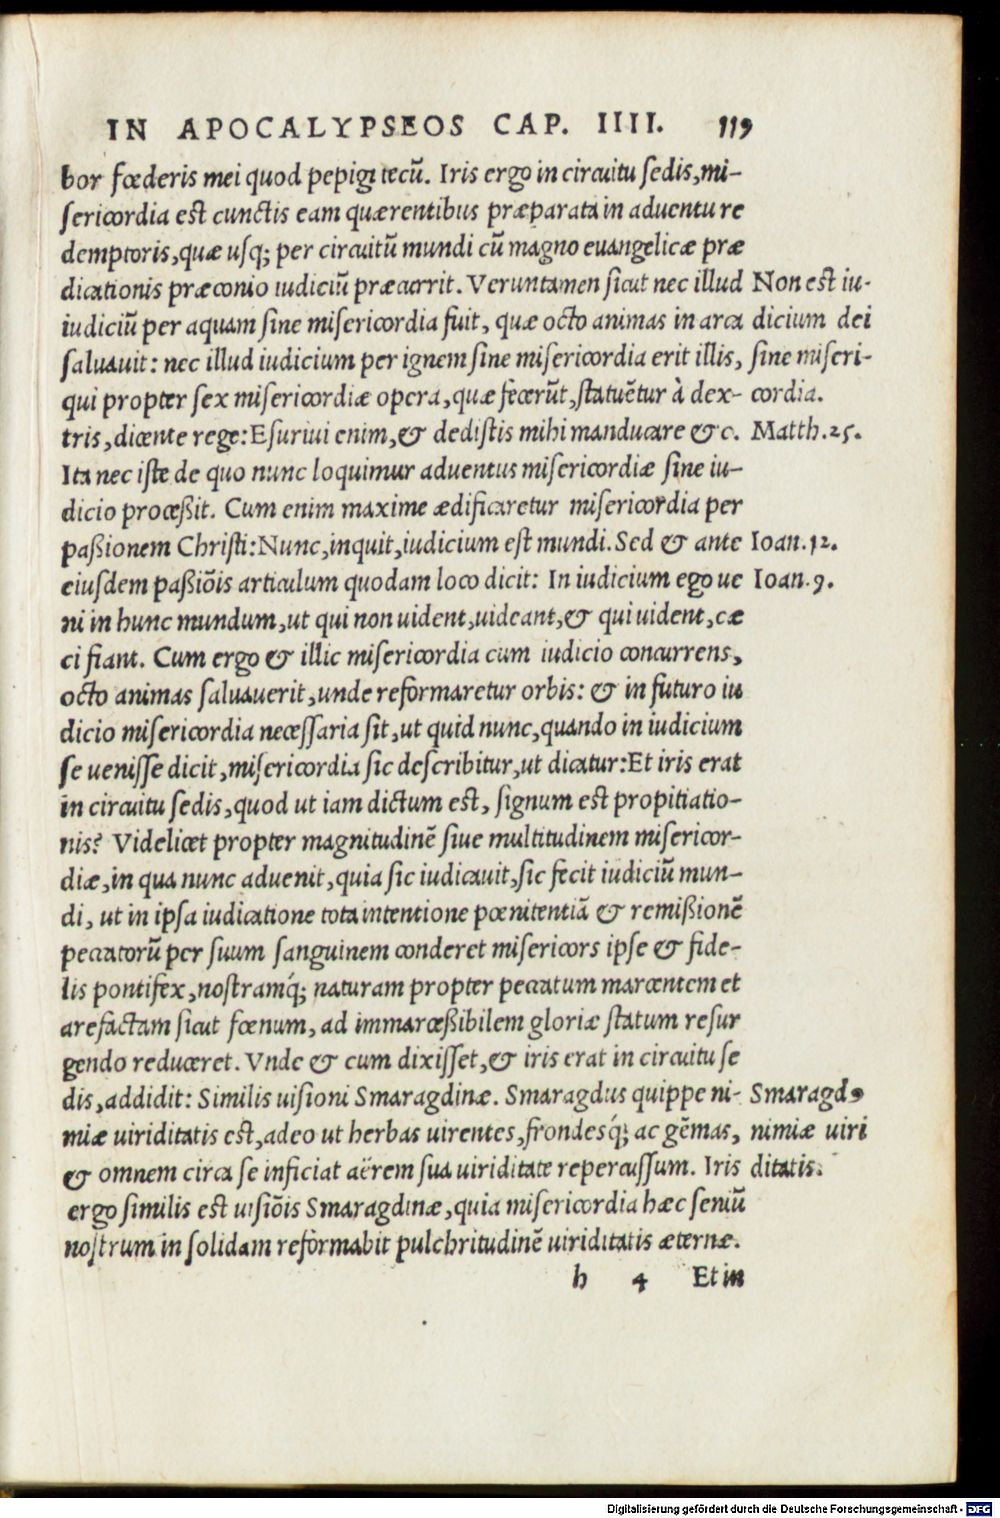 IN APOCALYPSEOS CAP. IIII. 119
bor fœderis mei quod pepigi tecū. Iris ergo in circuitu sedis, mi-
sericordia est cunctis eam quærentibus præparata in aduentu re
demptoris, quæ usq; per circuitū mundi cū magno euangelicæ præ
dicationis præconio iudiciū præcurrit. Veruntamen sicut nec illud
Non est iu-
iudiciū per aquam sine misericordia fuit, quæ octo animas in arca
dicium dei
saluauit: nec illud iudicium per ignem sine misericordia erit illis,
sine miseri-
qui propter sex misericordiæ opera, quæ fecerūt, statuētur à dex-
cordia.
tris, dicente rege: Esuriui enim, & dedistis mihi manducare & c.
Matth. 25.
Ita nec iste de quo nunc loquimur aduentus misericordiæ sine iu-
dicio proceßit. Cum enim maxime ædificaretur misericordia per
paßionem Christi: Nunc, inquit, iudicium est mundi. Sed & ante
Ioan. 12.
eiusdem paßiōis articulum quodam loco dicit: In iudicium ego ue
Ioan. 9.
ni in hunc mundum, ut qui non uident, uideant, & qui uident, cæ
ci fiant. Cum ergo & illic misericordia cum iudicio concurrens,
octo animas saluauerit, unde reformaretur orbis: & in futuro iu
dicio misericordia necessaria sit, ut quid nunc, quando in iudicium
se uenisse dicit, misericordia sic describitur, ut dicatur: Et iris erat
in circuitu sedis, quod ut iam dictum est, signum est propitiatio-
nis? Videlicet propter magnitudinē siue multitudinem misericor-
diæ, in qua nunc aduenit, quia sic iudicauit, sic fecit iudiciū mun-
di, ut in ipsa iudicatione tota intentione pœnitentiā & remißionē
peccatorū per suum sanguinem conderet misericors ipse & fide-
lis pontifex, nostramq́; naturam propter peccatum marcentem et
arefactam sicut fœnum, ad immarceßibilem gloriæ statum resur
gendo reduceret. Vnde & cum dixisset, & iris erat in circuitu se
dis, addidit: Similis uisioni Smaragdinæ. Smaragdus quippe ni-
Smaragdꝰ
miæ uiriditatis est, adeo ut herbas uirentes, frondesq́; ac gēmas,
nimiæ uiri
& omnem circa se inficiat aërem sua uiriditate repercussum. Iris
ditatis.
ergo similis est uisiōis Smaragdinæ, quia misericordia hæc seniū
nostrum in solidam reformabit pulchritudinē uiriditatis æternæ.
h 4 Et in
Digitalisierung gefördert durch die Deutsche Forschungsgemeinschaft - DFG